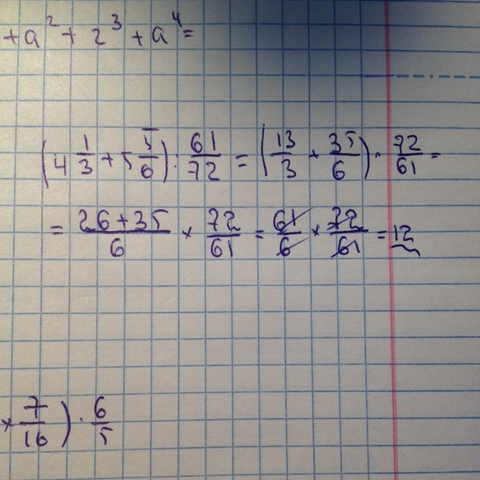 + a² + 2³ + a⁴ =
(4 1/3 + 5 5/6) : 61/72 = (13/3 + 35/6) · 72/61 =
= 26+35/6 × 72/61 = 61/6 × 72/61 = 12
× 7/16) · 6/5